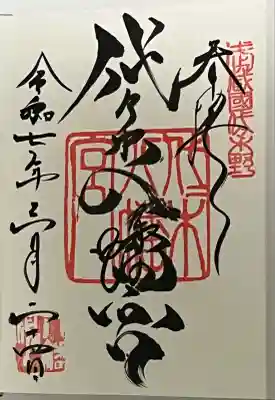 武蔵國代々木野
奉拝
代々木八幡宮
代々木
八幡
宮
令和七年三月二十四日